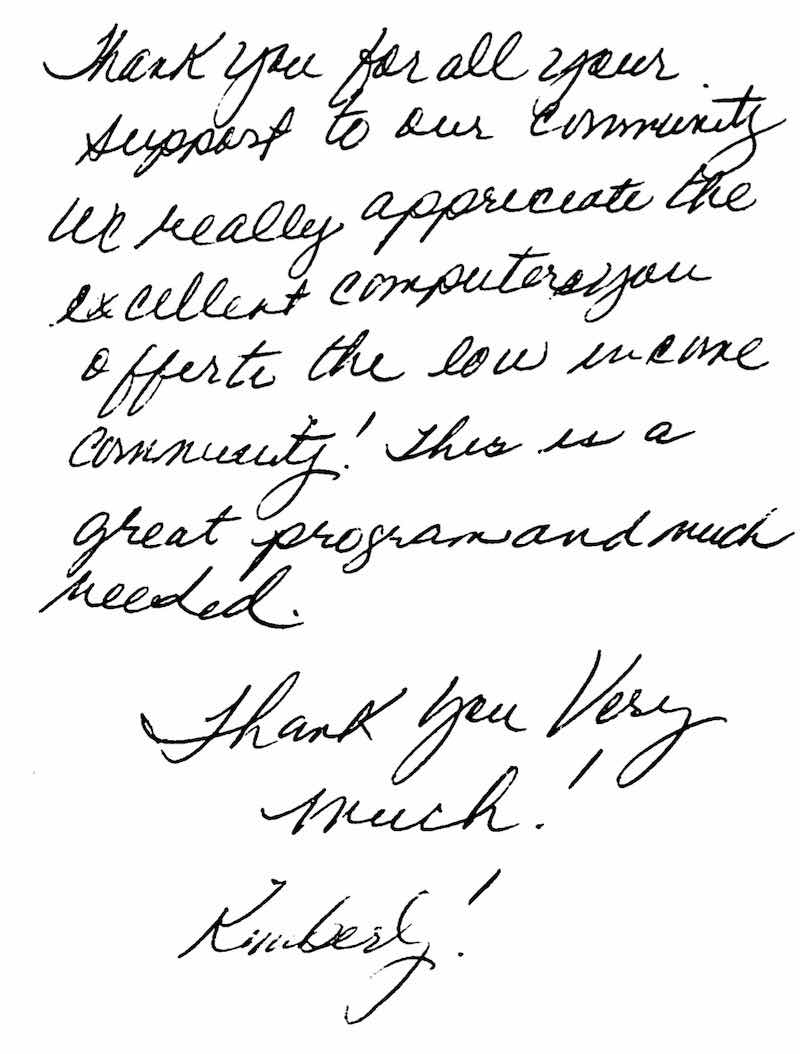 Thank you for all your
support to our community
We really appreciate the
excellent computers you
offer to the low income
community! This is a
great program and much
needed.
Thank you Very
much!
Kimberly!